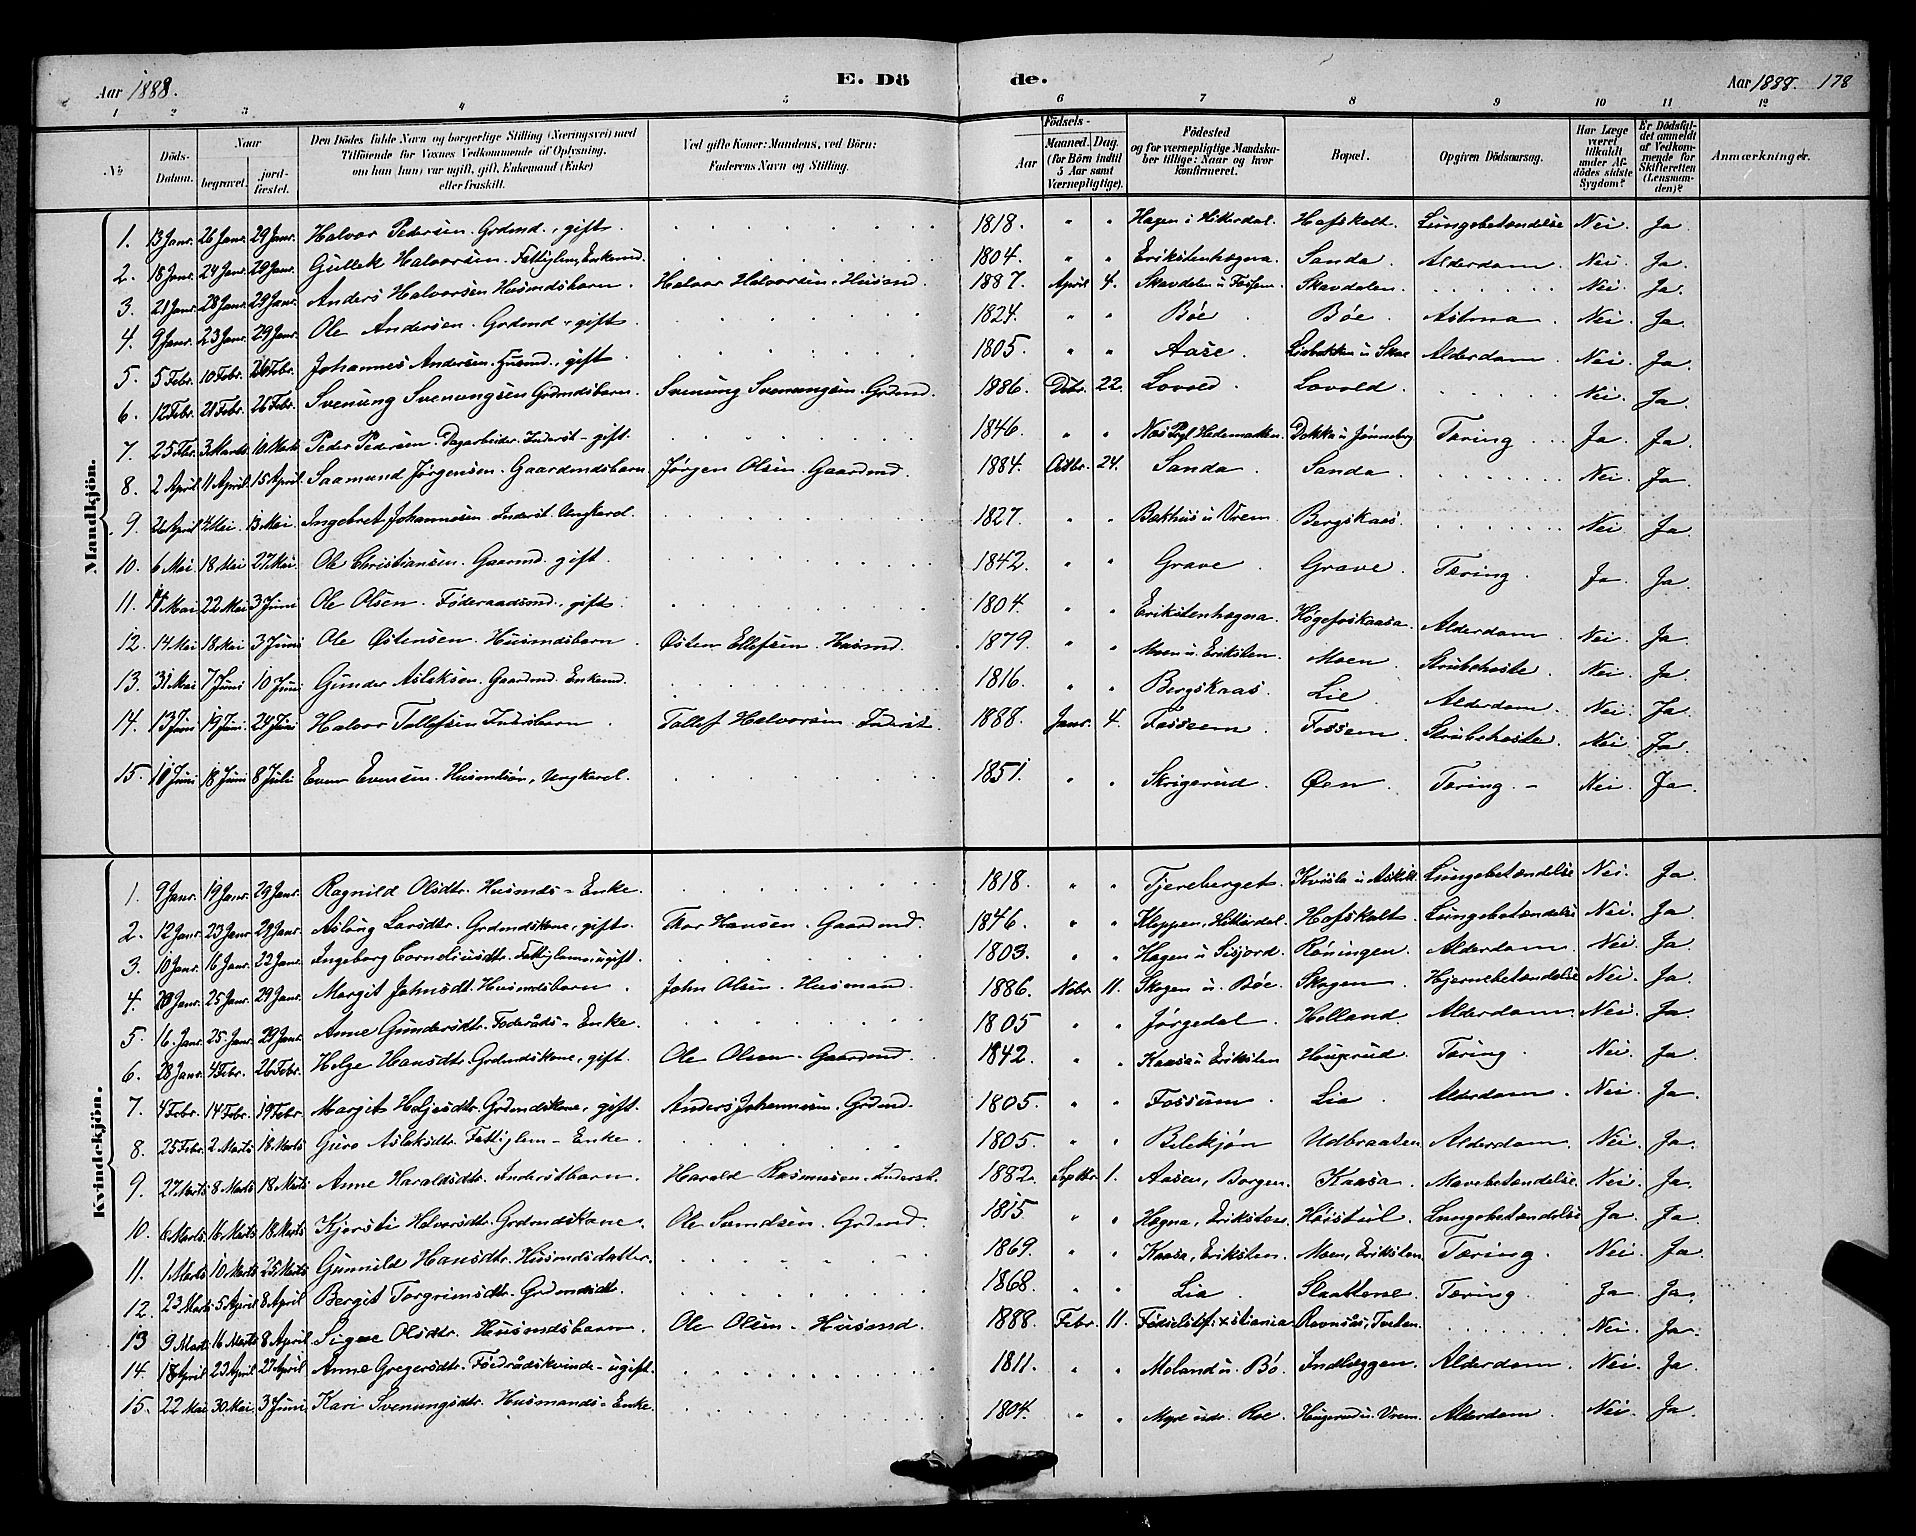 Aar 1888. E. Dö de. Aar 1888. 178
1 2 3 4 5 6 7 8 9 10 11 12
No Döds-Datum. Naar begravet. jord-fæstet. Den Dödes fulde Navn og borgerlige Stilling (Næringsvei) med Tilföiende for Voxnes Vedkommende af Oplysning, om han (hun) var ugift, gift, Enkemand (Enke) eller fraskilt. Ved gifte Koner: Mandens, ved Börn: Faderens Navn og Stilling. Födsels- Aar Maaned. Dag. (for Börn indtil 5 Aar samt Værnepligtige). Födested og for værnepligtige Mandskaber tillige: Naar og hvor konfirmeret. Bopæl. Opgiven Dödsaarsag. Har Læge været tilkaldt under Afdödes sidste Sygdom? Er Dödsfaldet anmeldt af Vedkommende for Skifteretten (Lensmanden)? Anmærkninger.
Mandkjön.
1. 13 Janr. 26 Janr. 29 Janr. Halvor Pedersen. Grdmd., gift 1818. " " Hagen i Hiterdal. Hofskolt. Lungebetændelse Nei. Ja.
2. 18 Janr. 24 Janr. 29 Janr. Gullek Halvorsen. Fattiglem, Enkemd. 1804. " " Erikstenhægna. Sanda. Alderdom. Nei. Ja.
3. 21 Janr. 28 Janr. 29 Janr. Anders Halvorsen Husmdsbarn. Halvor Halvorsen. Husmd 1887. April 4. Skavdalen u Fossem. Skavdalen. Nei. Ja.
4. 9 Janr. 23 Janr. 29 Janr. Ole Andersen. Grdmd, gift. 1824. " " Böe. Böe. Astma. Nei. Ja.
5. 5 Febr. 10 Febr. 26 Febr. Johannes Andersen. Husmd., gift 1805. " " Aase. Liebakken u Skoe Alderdom. Nei. Ja.
6. 12 Febr. 21 Febr. 26 Febr. Svenung Svenungsen Grdmdsbarn. Svenung Svenungsen. Grdmd. 1886. Debr. 22. Lovold. Lovold. Nei. Ja.
7. 25 Febr. 3 Marts 10 Marts Peder Pedersen. Dagarbeider. Inderst - gift. 1846. " " Næs Prgl Hedemarken. Dokka u Jønneberg Tæring. Ja. Ja.
8. 2 April 11 April 15 April Saamund Jørgensen. Gaardmdsbarn. Jørgen Olsen. Gaardmd. 1884. Octbr. 24. Sanda. Sanda. Nei. Ja.
9. 26 April 4 Mai. 13 Mai. Ingebret Johannesen. Inderst. Ungkarl. 1827. " " Bakhus u Vrem. Bergskaas. Nei. Ja.
10. 6 Mai 18 Mai 27 Mai. Ole Christiansen. Gaarmd. gift. 1842. " " Grave. Grave. Tæring. Ja. Ja.
11. 11 Mai 22 Mai 3 Juni Ole Olsen. Föderaadsmd., gift. 1804. " " Erikstenhægna. Högefoskaasa. Alderdom. Nei. Ja
12. 14 Mai 18 Mai 3 Juni Ole Østensen. Husmdsbarn. Østen Ellefsen. Husmd. 1879. " " Moen u. Eriksten. Moen. Strubehoste. Nei. Ja.
13. 31 Mai 7 Juni 10 Juni Gunder Aslaksen. Gaardmd. Enkemd. 1816. " " Bergskaas. Lie. Alderdom. Nei. Ja.
14. 13 Juni 19 Juni 24 Juni Halvor Tollefsen Indrsbarn. Tollef Halvorsen. Inderst. 1888. Janr. 4. Fossem. Fossem. Strubehoste. Nei. Ja.
15. 10 Juni 18 Juni 8 Juli Even Evensen. Husmdsön, Ungkarl. 1851. " " Skrigerud. Øen. Tæring. Nei. Ja.
Kvindekjön.
1. 9 Janr. 19 Janr. 29 Janr. Ragnild Olsdtr. Husmds - Enke. 1818. " " Tjereberget. Kvisla u Askild. Lungebetændelse Nei. Ja.
2. 12 Janr. 23 Janr. 29 Janr. Aslaug Larsdtr. Grdmdskone, gift. Thor Hansen. Gaardmd. 1846. " " Kleppen, Hitterdal. Hofskolt. Lungebetændelse Nei. Ja.
3. 10 Janr. 16 Janr. 22 Janr. Ingeborg Corneliusdtr. Fattiglem - ugift. 1803. " " Hagen u Sisjord. Röningen. Alderdom. Nei. Ja.
4. 20 Janr. 25 Janr. 29 Janr. Margit Johnsdt. Husmdsbarn. John Olsen. Husmand. 1886. Nobr. 11. Skogen u. Böe. Skogen. Hjernebetændelse Nei. Ja.
5. 16. Janr. 25. Janr. 29 Janr. Anne Gundersdtr. Föderåds - Enke. 1805 " " Jörgedal. Holland. Alderdom. Nei. Ja.
6. 28 Janr. 4 Febr. 26 Febr. Helge Hansdtr. Grdmdskone, gift. Ole Olsen. Gaardmd. 1842. " " Kaasa u Eriksten Hougerud. Tæring. Nei. Ja.
7. 4 Febr. 14 Febr. 19 Febr. Margit Holjesdtr. Grdmdskone, gift. Anders Johannesen. Grdmd. 1805. " " Fossum. Lia. Alderdom. Nei. Ja.
8. 25 Febr. 2 Marts 18 Marts Guro Aslaksdtr. Fattiglem - Enke. 1805. " " Blekjön Udbraaten. Alderdom. Nei. Ja.
9. 27 Marts 8 Marts 18 Marts Anne Haraldsdtr. Inderstbarn. Harald Rasmusen. Inderst. 1882. Septbr. 1. Aasen, Borgen. Kaasa. Mavebetændelse. Nei. Ja.
10. 6 Marts 16 Marts 18 Marts Kjersti Halvorsdtr. Grdmdskone. Ole Samdsen. Grdmd. 1815 " " Hægna, Eriksten. Höistul. Lungebetændelse Ja. Ja.
11. 1 Marts 10 Marts 25 Marts Gunnild Hansdtr. Husmdsdatter. 1869. " " Kaasa, Eriksten. Moen, Eriksten Tæring. Nei. Ja.
12. 23 Marts 5 April 8 April Bergit Torgrimsdtr. Grdmdsdt. 1868. " " Lia. Slaattene. Tæring. Ja. Ja.
13 9 Marts 16 Marts 8 April Signe Olsdtr. Husmdsbarn. Ole Olsen. Husmd. 1888. Febr. 11. Födselsst. i Xstiania Ravnsås, Nei. Ja.
14. 18 April 23 April 27 April Anne Gregersdtr. Föderådskvinde - ugift. 1811. " " Moland u. Bö. Indlæggen. Alderdom. Nei. Ja.
15. 22 Mai 30 Mai 3 Juni Kari Svenungsdtr. Husmands - Enke. 1804. " " Myre undr. Roe. Hougerud u. Vrem. Alderdom. Nei. Ja.